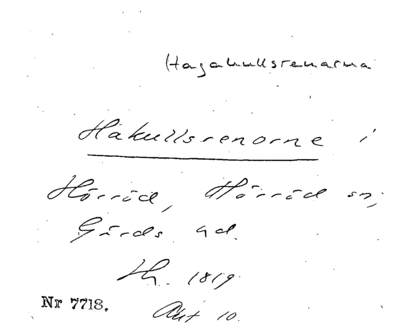 Hagakullsrenarna
Hakullsrenorne i
Hörröd, Hörröd sn,
Gärds hd.
Lh. 1819
Nr 7718.
Akt 10.